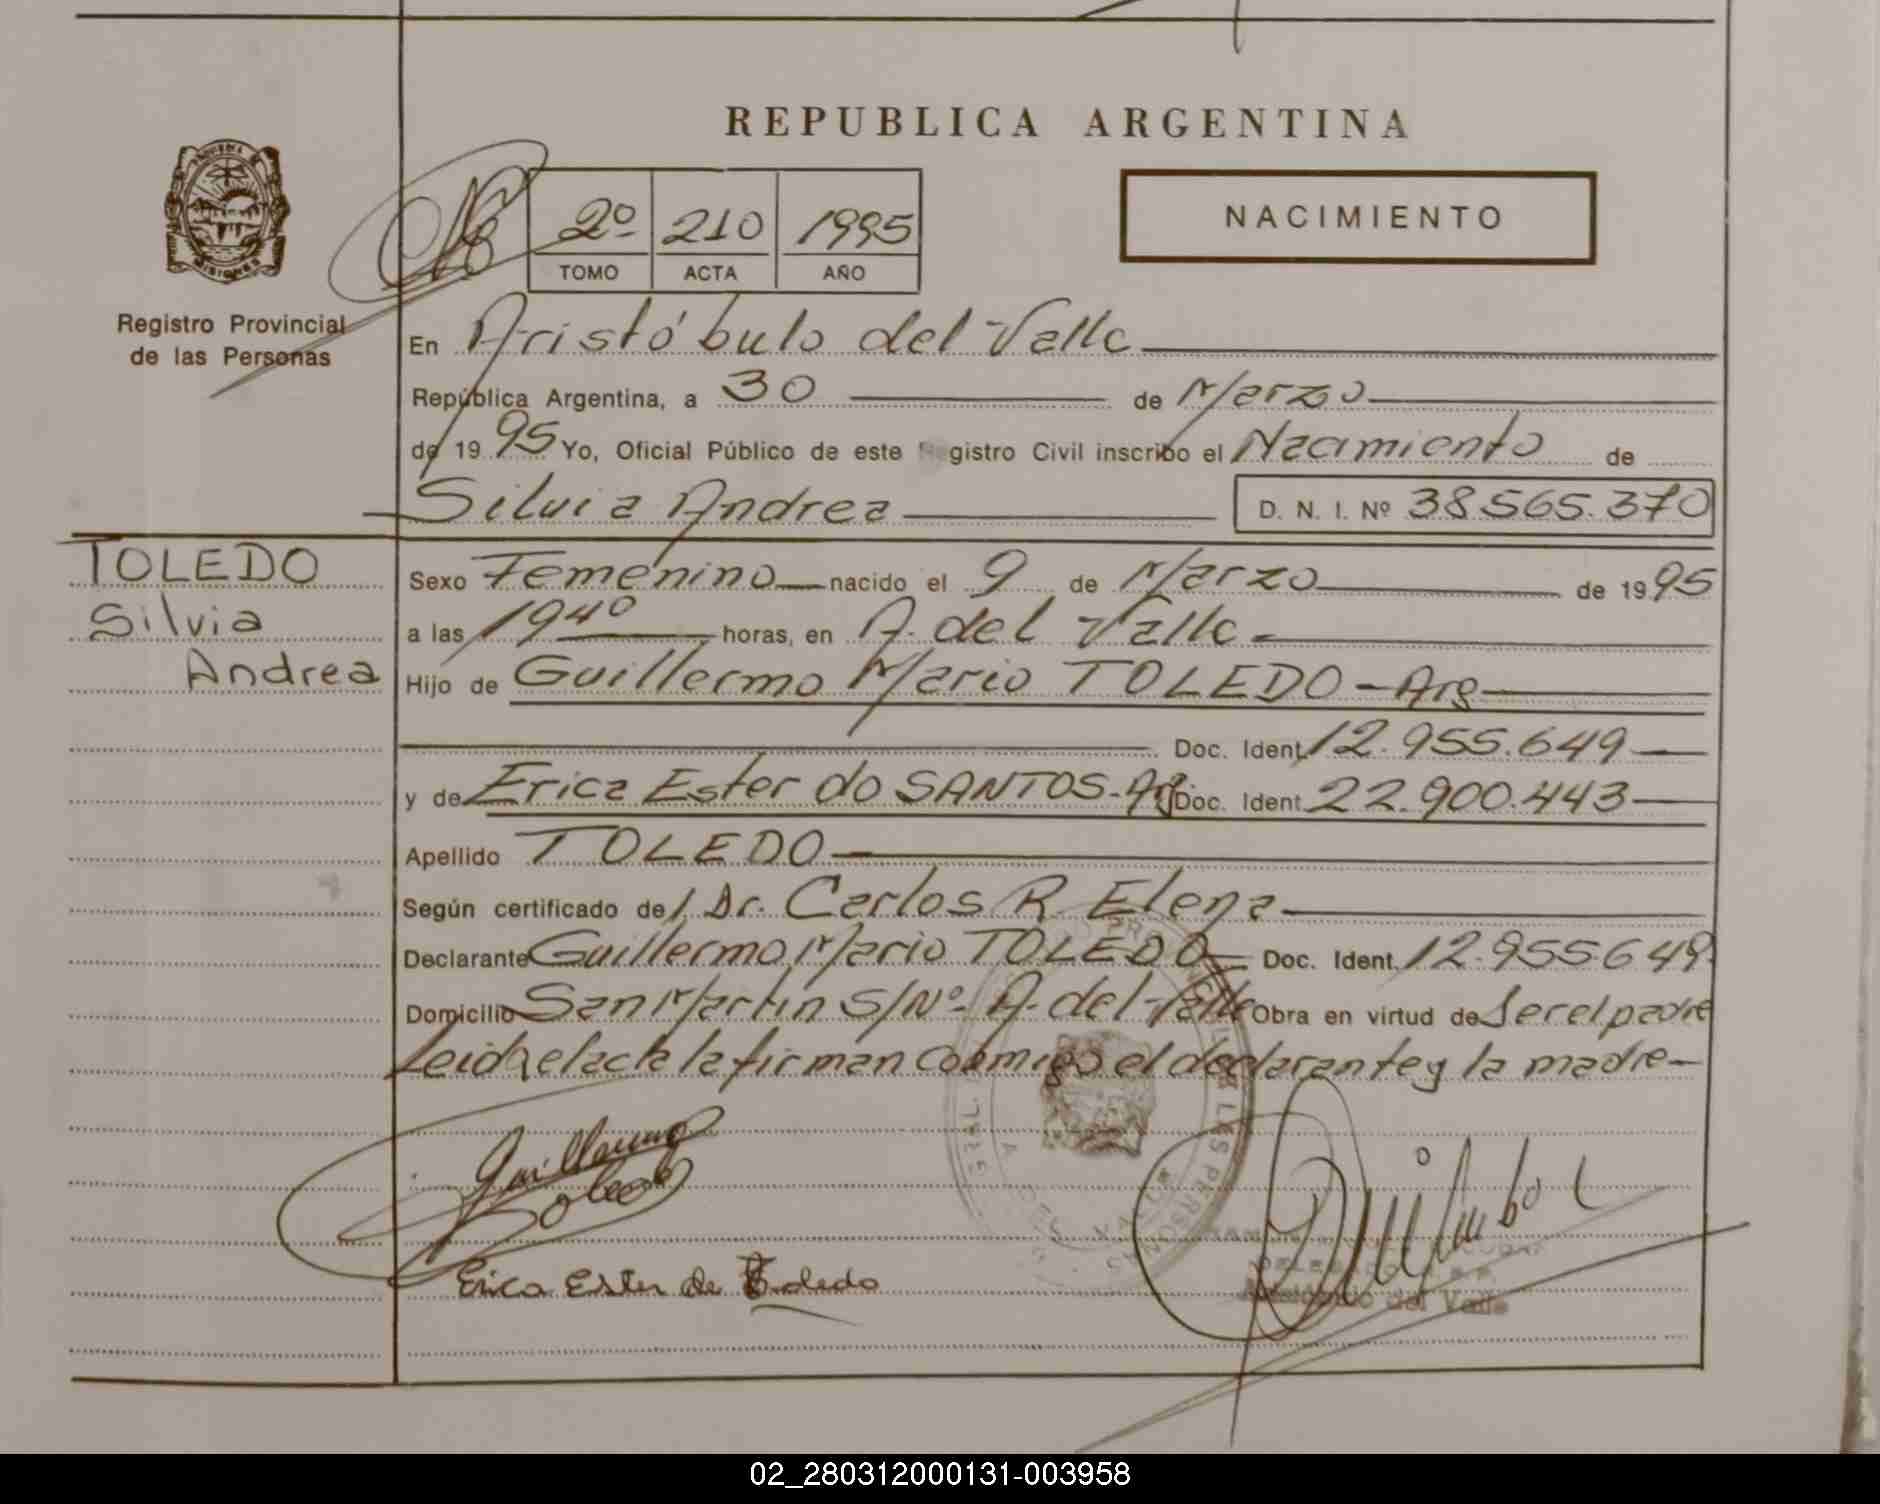 REPUBLICA ARGENTINA
NACIMIENTO
2º 210 1995
TOMO ACTA AÑO
MISIONES
Registro Provincial
de las Personas
En Aristóbulo del Valle
República Argentina, a 30 de Marzo
de 1995 Yo, Oficial Público de este Registro Civil inscribo el Nacimiento de
Silvia Andrea D. N. I. Nº 38.565.370
TOLEDO
Silvia
Andrea
Sexo Femenino nacido el 9 de Marzo de 1995
a las 19 40 horas, en A. del Valle
Hijo de Guillermo Mario TOLEDO - Arg
Doc. Ident. 12.955.649
y de Erica Ester do SANTOS - Arg. Doc. Ident. 22.900.443
Apellido TOLEDO
Según certificado del Dr. Carlos R. Elena
Declarante Guillermo Mario TOLEDO Doc. Ident. 12.955.649
Domicilio San Martin S/Nº - A. del Valle Obra en virtud de Ser el padre
Leida el acta la firman conmigo el declarante y la madre
Guillermo
Toledo
Erica Ester de Toledo
DELEGADO
Aristóbulo del Valle
02_280312000131-003958